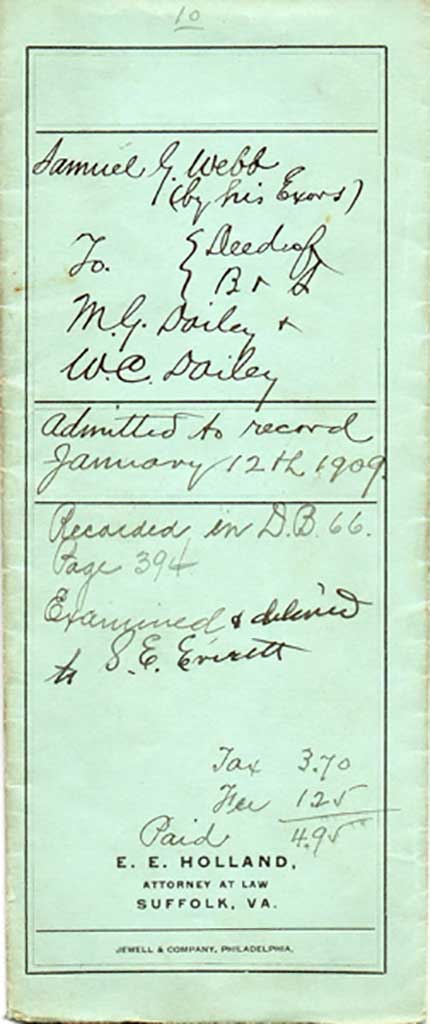 10
Samuel G. Webb
(by his Exors)
To. { Deed of
{ B & S
M.G. Dailey &
W.C. Dailey
Admitted to record
January 12th 1909.
Recorded in D.B. 66.
Page 394
Examined & delivered
to S. E. Everett
Tax 3.70
Fee 125
Paid 4.95
E. E. HOLLAND,
ATTORNEY AT LAW
SUFFOLK, VA.
JEWELL & COMPANY, PHILADELPHIA.